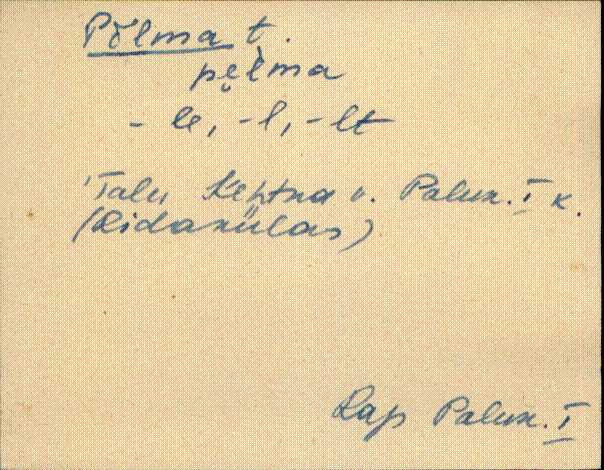 Põlma t.
pe̮l̀ma
- le, -l, -lt
Talu Kehtna v. Palux. I k.
(Lidanülas)
Rap Palux. I